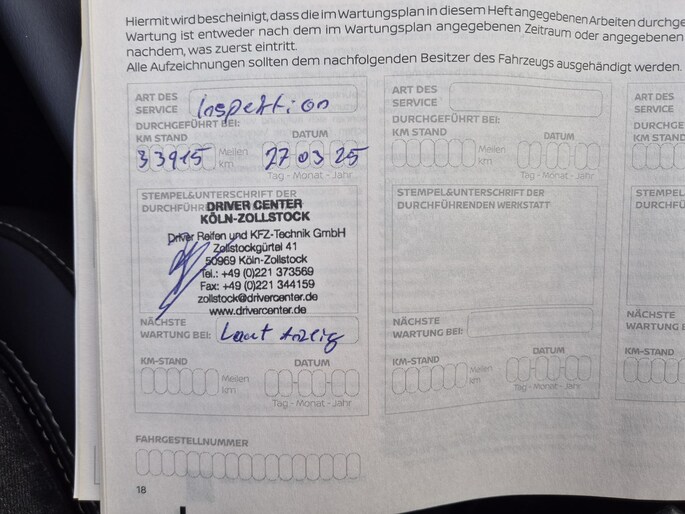 Hiermit wird bescheinigt, dass die im Wartungsplan in diesem Heft angegebenen Arbeiten durchge
Wartung ist entweder nach dem im Wartungsplan angegebenen Zeitraum oder angegebenen
nachdem, was zuerst eintritt.
Alle Aufzeichnungen sollten dem nachfolgenden Besitzer des Fahrzeugs ausgehändigt werden.
ART DES
SERVICE
Inspektion
DURCHGEFÜHRT BEI:
KM STAND
DATUM
33915
Meilen
km
27 03 25
Tag - Monat - Jahr
STEMPEL&UNTERSCHRIFT DER
DURCHFÜHR
DRIVER CENTER
KÖLN-ZOLLSTOCK
Driver Reifen und KFZ-Technik GmbH
Zollstockgürtel 41
50969 Köln-Zollstock
Tel.: +49 (0)221 373569
Fax: +49 (0)221 344159
zollstock@drivercenter.de
www.drivercenter.de
NÄCHSTE
WARTUNG BEI:
Laut Anzeig
KM-STAND
DATUM
Meilen
km
Tag - Monat - Jahr
FAHRGESTELLNUMMER
18
ART DES
SERVICE
DURCHGEFÜHRT BEI:
KM STAND
DATUM
Meilen
km
Tag - Monat - Jahr
STEMPEL&UNTERSCHRIFT DER
DURCHFÜHRENDEN WERKSTATT
NÄCHSTE
WARTUNG BEI:
KM-STAND
DATUM
Meilen
km
Tag - Monat - Jahr
ART DES
SERVICE
DURCHGE
KM STAND
STEMPEL
DURCHFÜ
NÄCHSTE
WARTUNG B
KM-STAND